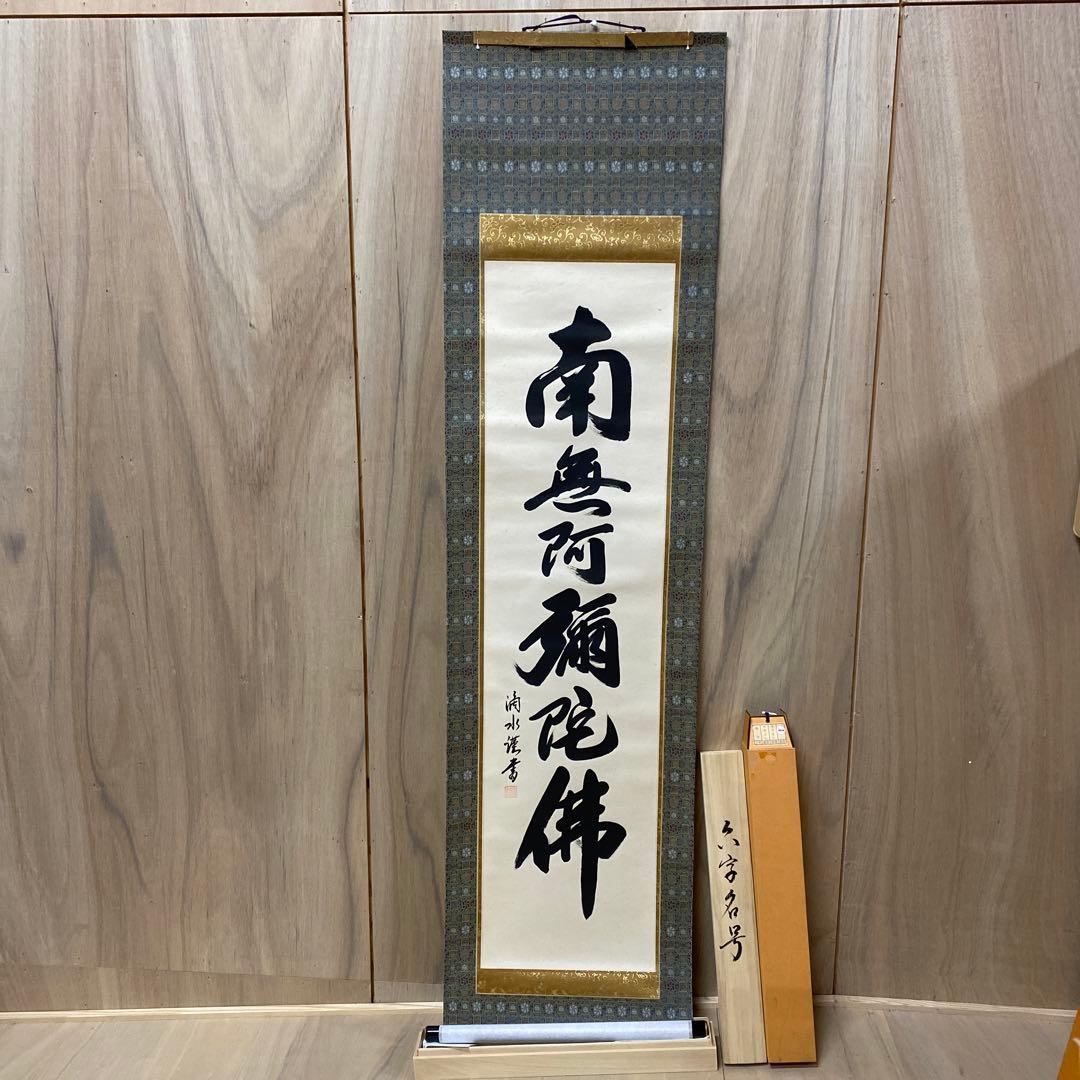 南無阿彌陀佛
滴水謹書
六字名号